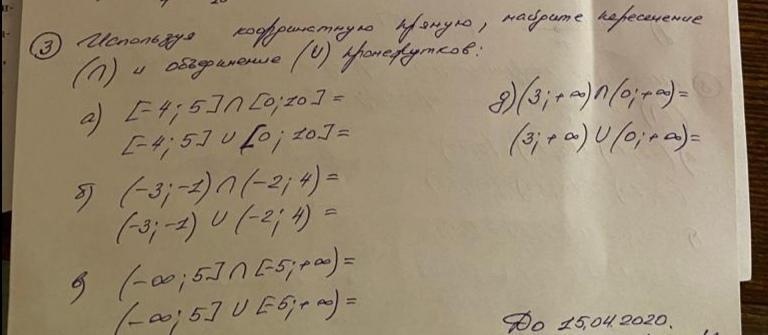 ③ Используя координатную прямую, найдите пересечение
(∩) и объединение (∪) промежутков:
а) [-4; 5] ∩ [0; 10] =
[-4; 5] ∪ [0; 10] =
б) (-3; -1) ∩ (-2; 4) =
(-3; -1) ∪ (-2; 4) =
в) (-∞; 5] ∩ [-5; +∞) =
(-∞; 5] ∪ [-5; +∞) =
д) (3; +∞) ∩ (0; +∞) =
(3; +∞) ∪ (0; +∞) =
До 15.04.2020.